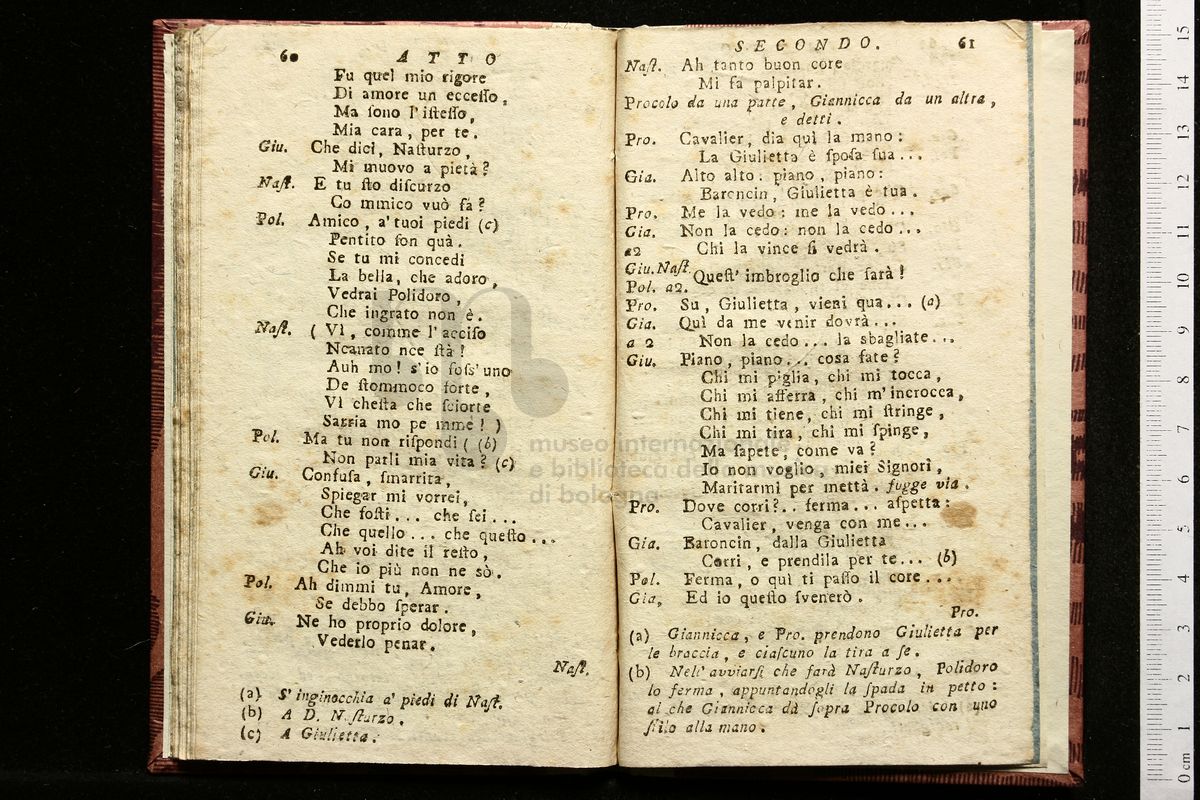 60 ATTO
Fu quel mio rigore
Di amore un ecceſſo,
Ma ſono l'iſteſſo,
Mia cara, per te.
Giu. Che dici, Naſturzo,
Mi muovo a pietà?
Naſt. E tu ſto diſcurzo
Co mmico vuò fa?
Pol. Amico, a' tuoi piedi (c)
Pentito ſon quà.
Se tu mi concedi
La bella, che adoro,
Vedrai Polidoro,
Che ingrato non è.
Naſt. ( Vi, comme l'acciſo
Ncanato nce ſtà!
Auh mo! s'io foſs'uno
De ſtommoco forte,
Vi cheſta che ſciorte
Sarria mo pe mme! )
Pol. Ma tu non riſpondi ( (b)
Non parli mia vita? (c)
Giu. Confuſa, ſmarrita,
Spiegar mi vorrei,
Che foſti... che ſei...
Che quello... che queſto...
Ah voi dite il reſto,
Che io più non ne sò.
Pol. Ah dimmi tu, Amore,
Se debbo ſperar.
Giu. Ne ho proprio dolore,
Vederlo penar.
Naſt.
(a) S'inginocchia a' piedi di Naſt.
(b) A D. Naſturzo.
(c) A Giulietta.
SECONDO. 61
Naſt. Ah tanto buon core
Mi fa palpitar.
Procolo da una parte, Giannicca da un altra,
e detti.
Pro. Cavalier, dia quì la mano:
La Giulietta è ſpoſa ſua...
Gia. Alto alto: piano, piano:
Baroncin, Giulietta è tua.
Pro. Me la vedo: me la vedo...
Gia. Non la cedo: non la cedo...
a2 Chi la vince ſi vedrà.
Giu. Naſt.
Pol. a2. Queſt' imbroglio che ſarà!
Pro. Su, Giulietta, vieni qua... (a)
Gia. Quì da me venir dovrà...
a 2 Non la cedo... la sbagliate...
Giu. Piano, piano... cosa fate?
Chi mi piglia, chi mi tocca,
Chi mi afferra, chi m'incrocca,
Chi mi tiene, chi mi ſtringe,
Chi mi tira, chi mi ſpinge,
Ma ſapete, come va?
Io non voglio, miei Signorì,
Maritarmi per mettà. fugge via.
Pro. Dove corri?.. ferma... aſpetta:
Cavalier, venga con me...
Gia. Baroncin, dalla Giulietta
Corri, e prendila per te... (b)
Pol. Ferma, o quì ti paſſo il core...
Gia, Ed io queſto ſvenerò.
Pro.
(a) Giannicca, e Pro. prendono Giulietta per
le braccia, e ciaſcuno la tira a ſe.
(b) Nell' avviarſi che farà Naſturzo, Polidoro
lo ferma, appuntandogli la ſpada in petto:
al che Giannicca dà ſopra Procolo con uno
ſtilo alla mano.
museo internazionale
e biblioteca della musica
di bologna